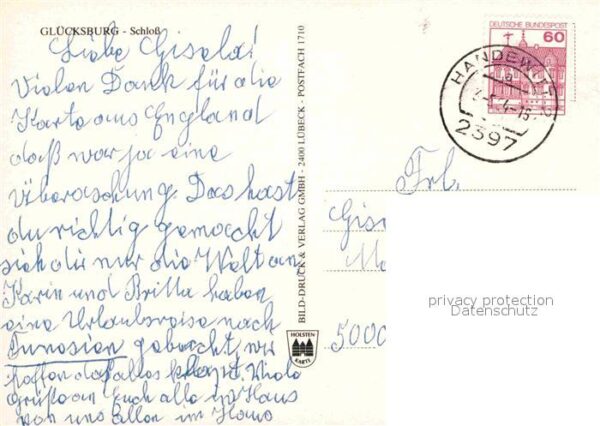 GLÜCKSBURG - Schloß
Liebe Gisela!
Vielen Dank für die
Karte aus England
daß war ja eine
Überaschung. Das hast
du richtig gemacht
sieh dir nur die Welt an
Karin und Britta haben
eine Urlaubsreise nach
Tunesien gebucht, wir
hoffen daß alles klapt. Viele
Grüße an Euch alle im Haus
von uns allen im Haus
BILD-DRUCK & VERLAG GMBH - 2400 LÜBECK - POSTFACH 1710
HOLSTEN
KARTE
DEUTSCHE BUNDESPOST
60
HANDEWITT 2
2397
Frl.
Gise
5000
privacy protection
Datenschutz